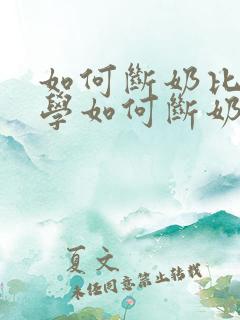 如何斷奶比
學如何斷奶
夏文
未經同意禁止轉載